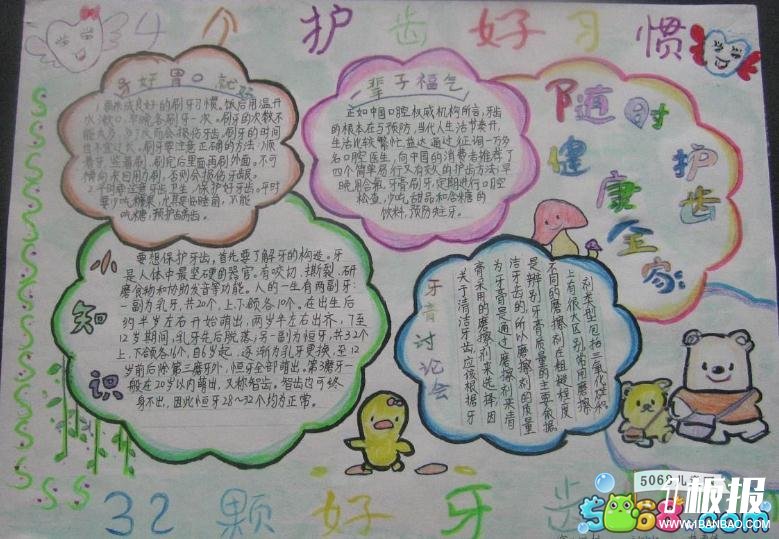 4个护齿好习惯
牙好胃口就好
1.要养成良好的刷牙习惯。饭后用温开
水漱口,早晚各刷牙一次。刷牙的次数不
能太多,多了反而会损伤牙齿,刷牙的时间
也不宜过长。刷牙要注意正确的方法:顺
着牙,竖着刷,刷完后里面再刷外面。不可
横向来回用力刷,否则会损伤牙龈。
2.平时要注意牙齿卫生,保护好牙齿。平时
要少吃糖果,尤其是睡前,不能
吃糖,预护龋齿。
一辈子福气
正如中国口腔权威机构所言,牙齿
的根本在与预防,当代人生活节奏升,
生活比较繁忙,益达通过征询一万多
名口腔医生,向中国的消费者推荐了
四个简单易行又有效的护齿方法:早
晚用含氟牙膏刷牙,定期进行口腔
检查,少吃甜品和含糖的
饮料,预防蛀牙。
随时护齿
健康全家
小知识
要想保护牙齿,首先要了解牙的构造。牙
是人体中最坚硬的器官。有咬切、撕裂、研
磨食物和协助发音等功能。人的一生有两副牙:
一副为乳牙,共20个,上下颌各10个。在出生后
约半岁左右开始萌出,两岁半左右出齐,7至
12岁期间,乳牙先后脱落;另一副为恒牙,共32个
上、下颌各16个,自6岁起,逐渐为乳牙更换,至12
岁前后除第三磨牙外,恒牙全部萌出。第3磨牙一
般在20岁以内萌出,又称智齿。智齿也可终
身不出,因此恒牙28~32个均为正常。
牙膏讨论会
关于清洁牙齿应该根据牙
膏采用的磨擦剂来选择,因
为牙膏是通过磨擦剂来清
洁牙齿的,所以磨擦剂的质量
是辨别牙膏质量的主要依据
不同的磨擦剂在粗糙程度
上有很大区别,常用磨擦
剂类型包括二氧化硅和
32颗好牙齿
5068儿童
板报
5068.com
WWW.1BANBAO.COM